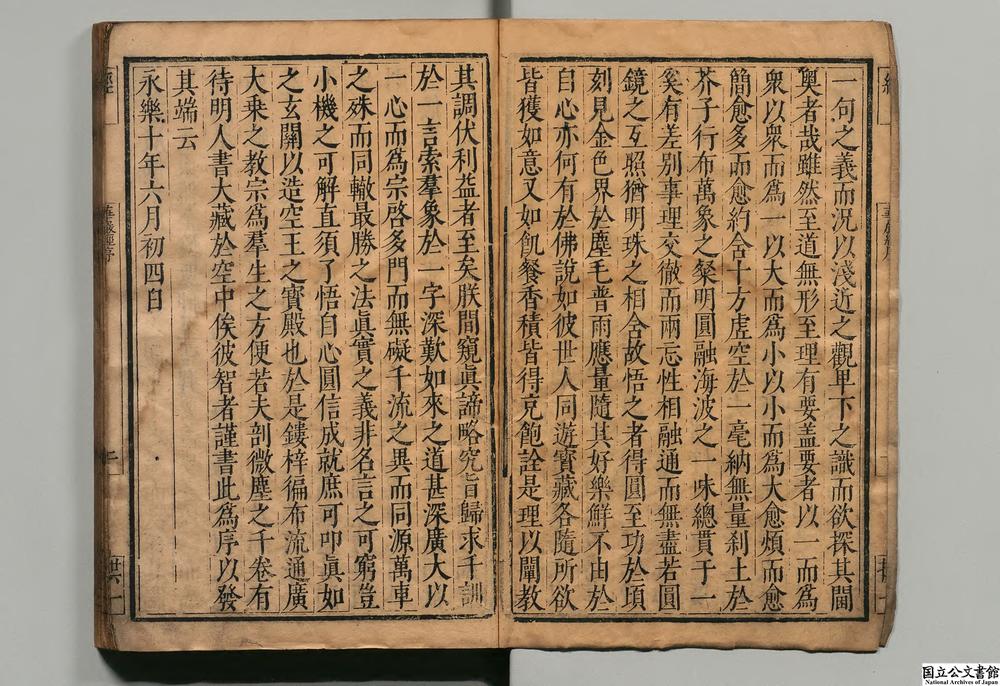 一句之義而況以淺近之觀卑下之識而欲探其閫
奧者哉雖然至道無形至理有要蓋要者以一而爲
衆以衆而爲一以大而爲小以小而爲大愈煩而愈
簡愈多而愈約含十方虛空於一毫納無量刹土於
芥子行布萬象之粲明圓融海波之一味總貫于一
奚有差別事理交徹而兩忘性相融通而無盡若圓
鏡之互照猶明珠之相含故悟之者得圓至功於頃
刻見金色界於塵毛普雨應量隨其好樂鮮不由於
自心亦何有於佛說如彼世人同遊寶藏各隨所欲
皆獲如意又如飢餐香積皆得充飽詮是理以闡教
其調伏利益者至矣朕間窺眞諦略究旨歸求千訓
於一言索羣象於一字深歎如來之道甚深廣大以
一心而爲宗啓多門而無礙千流之異而同源萬車
之殊而同轍最勝之法眞實之義非名言之可窮豈
小機之可解直須了悟自心圓信成就庶可叩眞如
之玄關以造空王之寶殿也於是鏤梓徧布流通廣
大乗之教宗爲羣生之方便若夫剖微塵之千卷有
待明人書大藏於空中俟彼智者謹書此爲序以發
其端云
永樂十年六月初四日
經
二
国立公文書館
National Archives of Japan